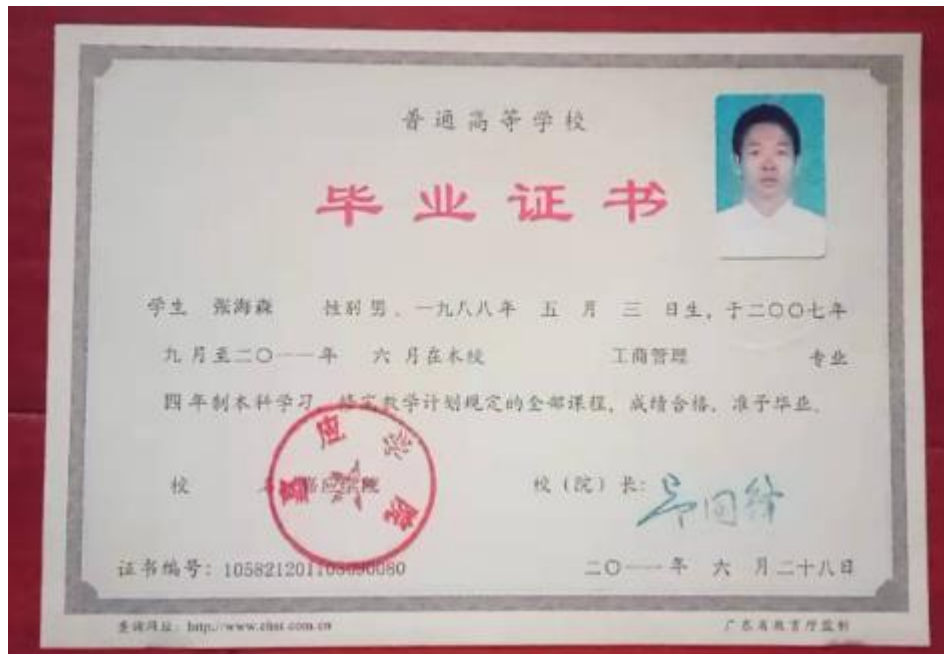 普通高等学校
毕业证书
学生 张海森 性别 男，一九八八年 五 月 三 日生，于二〇〇七年
九 月至二〇一一年 六 月在本校 工商管理 专业
四年制本科学习，修完教学计划规定的全部课程，成绩合格，准予毕业。
校 名：嘉应学院
校（院）长：
嘉应学院
证书编号：
二〇一一年 六 月二十八日
查询网址：http://www.chsi.com.cn
广东省教育厅监制